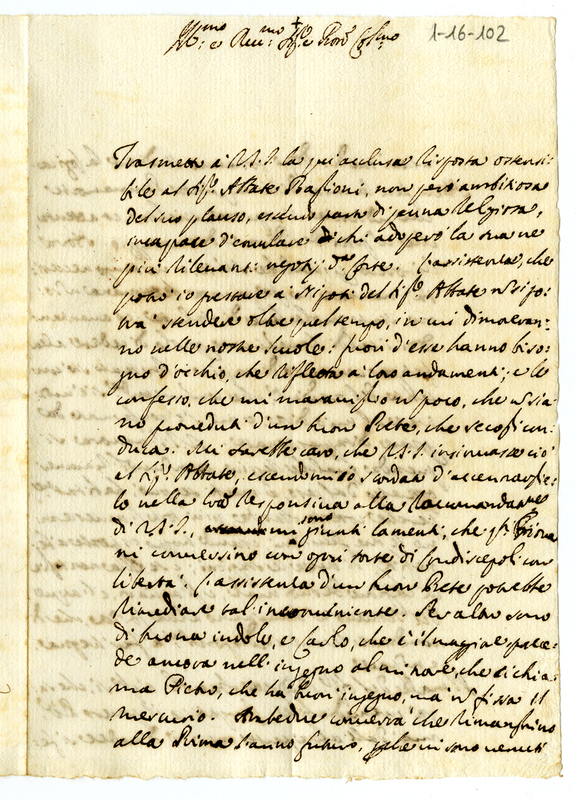 Ill.mo e Rev.mo Sig.e e Pron Col.mo
1-16-102
Trasmetto à V.S.I. la qui acclusa Risposta ostensi-
bile al Sig. Abbate, non però ambiziosa
del suo plauso, parto di penna Religiosa,
incapace d'emulare chi adoperò la sua ne
più rilevanti negozij da Corte. L'assistenza, che
potrò io prestare à Nipoti del Sig. Abbate ñ si po-
trà stendere oltre quel tempo, in cui dimoran-
no nelle nostre Scuole: fuori d'esse hanno biso-
gno d'occhio, che rifletta a loro andamenti; e le
confesso, che mi maraviglio ñ poco, che ñ sia-
no proveduti d'un buon Prete, che seco li con-
duca. Mi sarebbe caro, che V.S.I. insinuasse ciò
al Sig. Abbate, essendomi io scordato d'accennarglie-
lo nella Responsiva alla Raccomandat
di V.S.I., mi sono giunti lamenti, che
ni conversino con ogni sorte di Condiscepoli con
libertà. L'assistenza d'un buon Prete potrebbe
rimediare tal inconveniente. Per altro sono
di buona indole, e Carlo, che è il maggiore prece-
de ancora nell'ingegno al minore, che si chia-
ma Pietro, che ha buon ingegno, mà ñ fissa il
mercurio. Ambedue converrà che rimanghino
alla Prima l'anno futuro, sono venuti